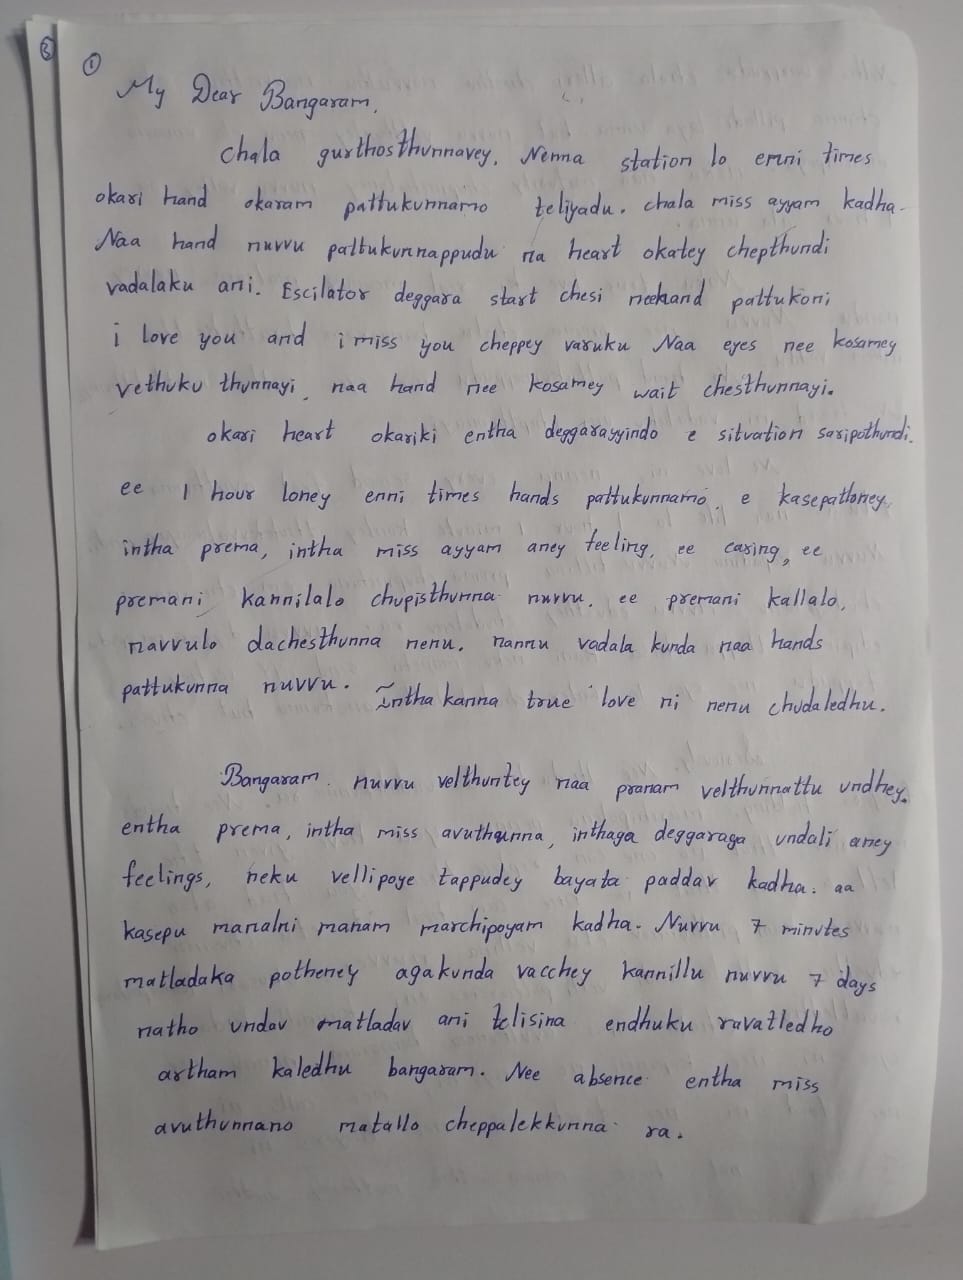 3
1
My Dear Bangaram,
chala gurthosthunnavey. Nenna station lo enni times
okari hand okaram pattukunnamo teliyadu. chala miss ayyam kadha.
Naa hand nuvvu pattukunnappudu na heart okatey chepthundi
vadalaku ani. Escilator deggara start chesi neehand pattukoni
i love you and i miss you cheppey varuku Naa eyes nee kosamey
vethuku thunnayi, naa hand nee kosamey wait chesthunnayi.
okari heart okariki entha deggarayyindo e situation saripothundi.
ee 1 hour loney enni times hands pattukunnamo, e kasepatloney
intha prema, intha miss ayyam aney feeling, ee caring, ee
premani kannilalo chupisthunna nuvvu. ee premani kallalo,
navvulo dachesthunna nenu. nannu vadala kunda naa hands
pattukunna nuvvu. Intha kanna true love ni nenu chudaledhu.
Bangaram nuvvu velthuntey naa pranam velthunnattu undhey.
entha prema, intha miss avuthunna, inthaga deggaraga undali aney
feelings, neku vellipoye tappudey bayata paddav kadha. aa
kasepu manalni manam marchipoyam kadha. Nuvvu 7 minutes
matladaka potheney agakunda vacchey kannillu nuvvu 7 days
natho undav matladav ani telisina endhuku ravatledho
artham kaledhu bangaram. Nee absence entha miss
avuthunnano matallo cheppalekkunna ra.